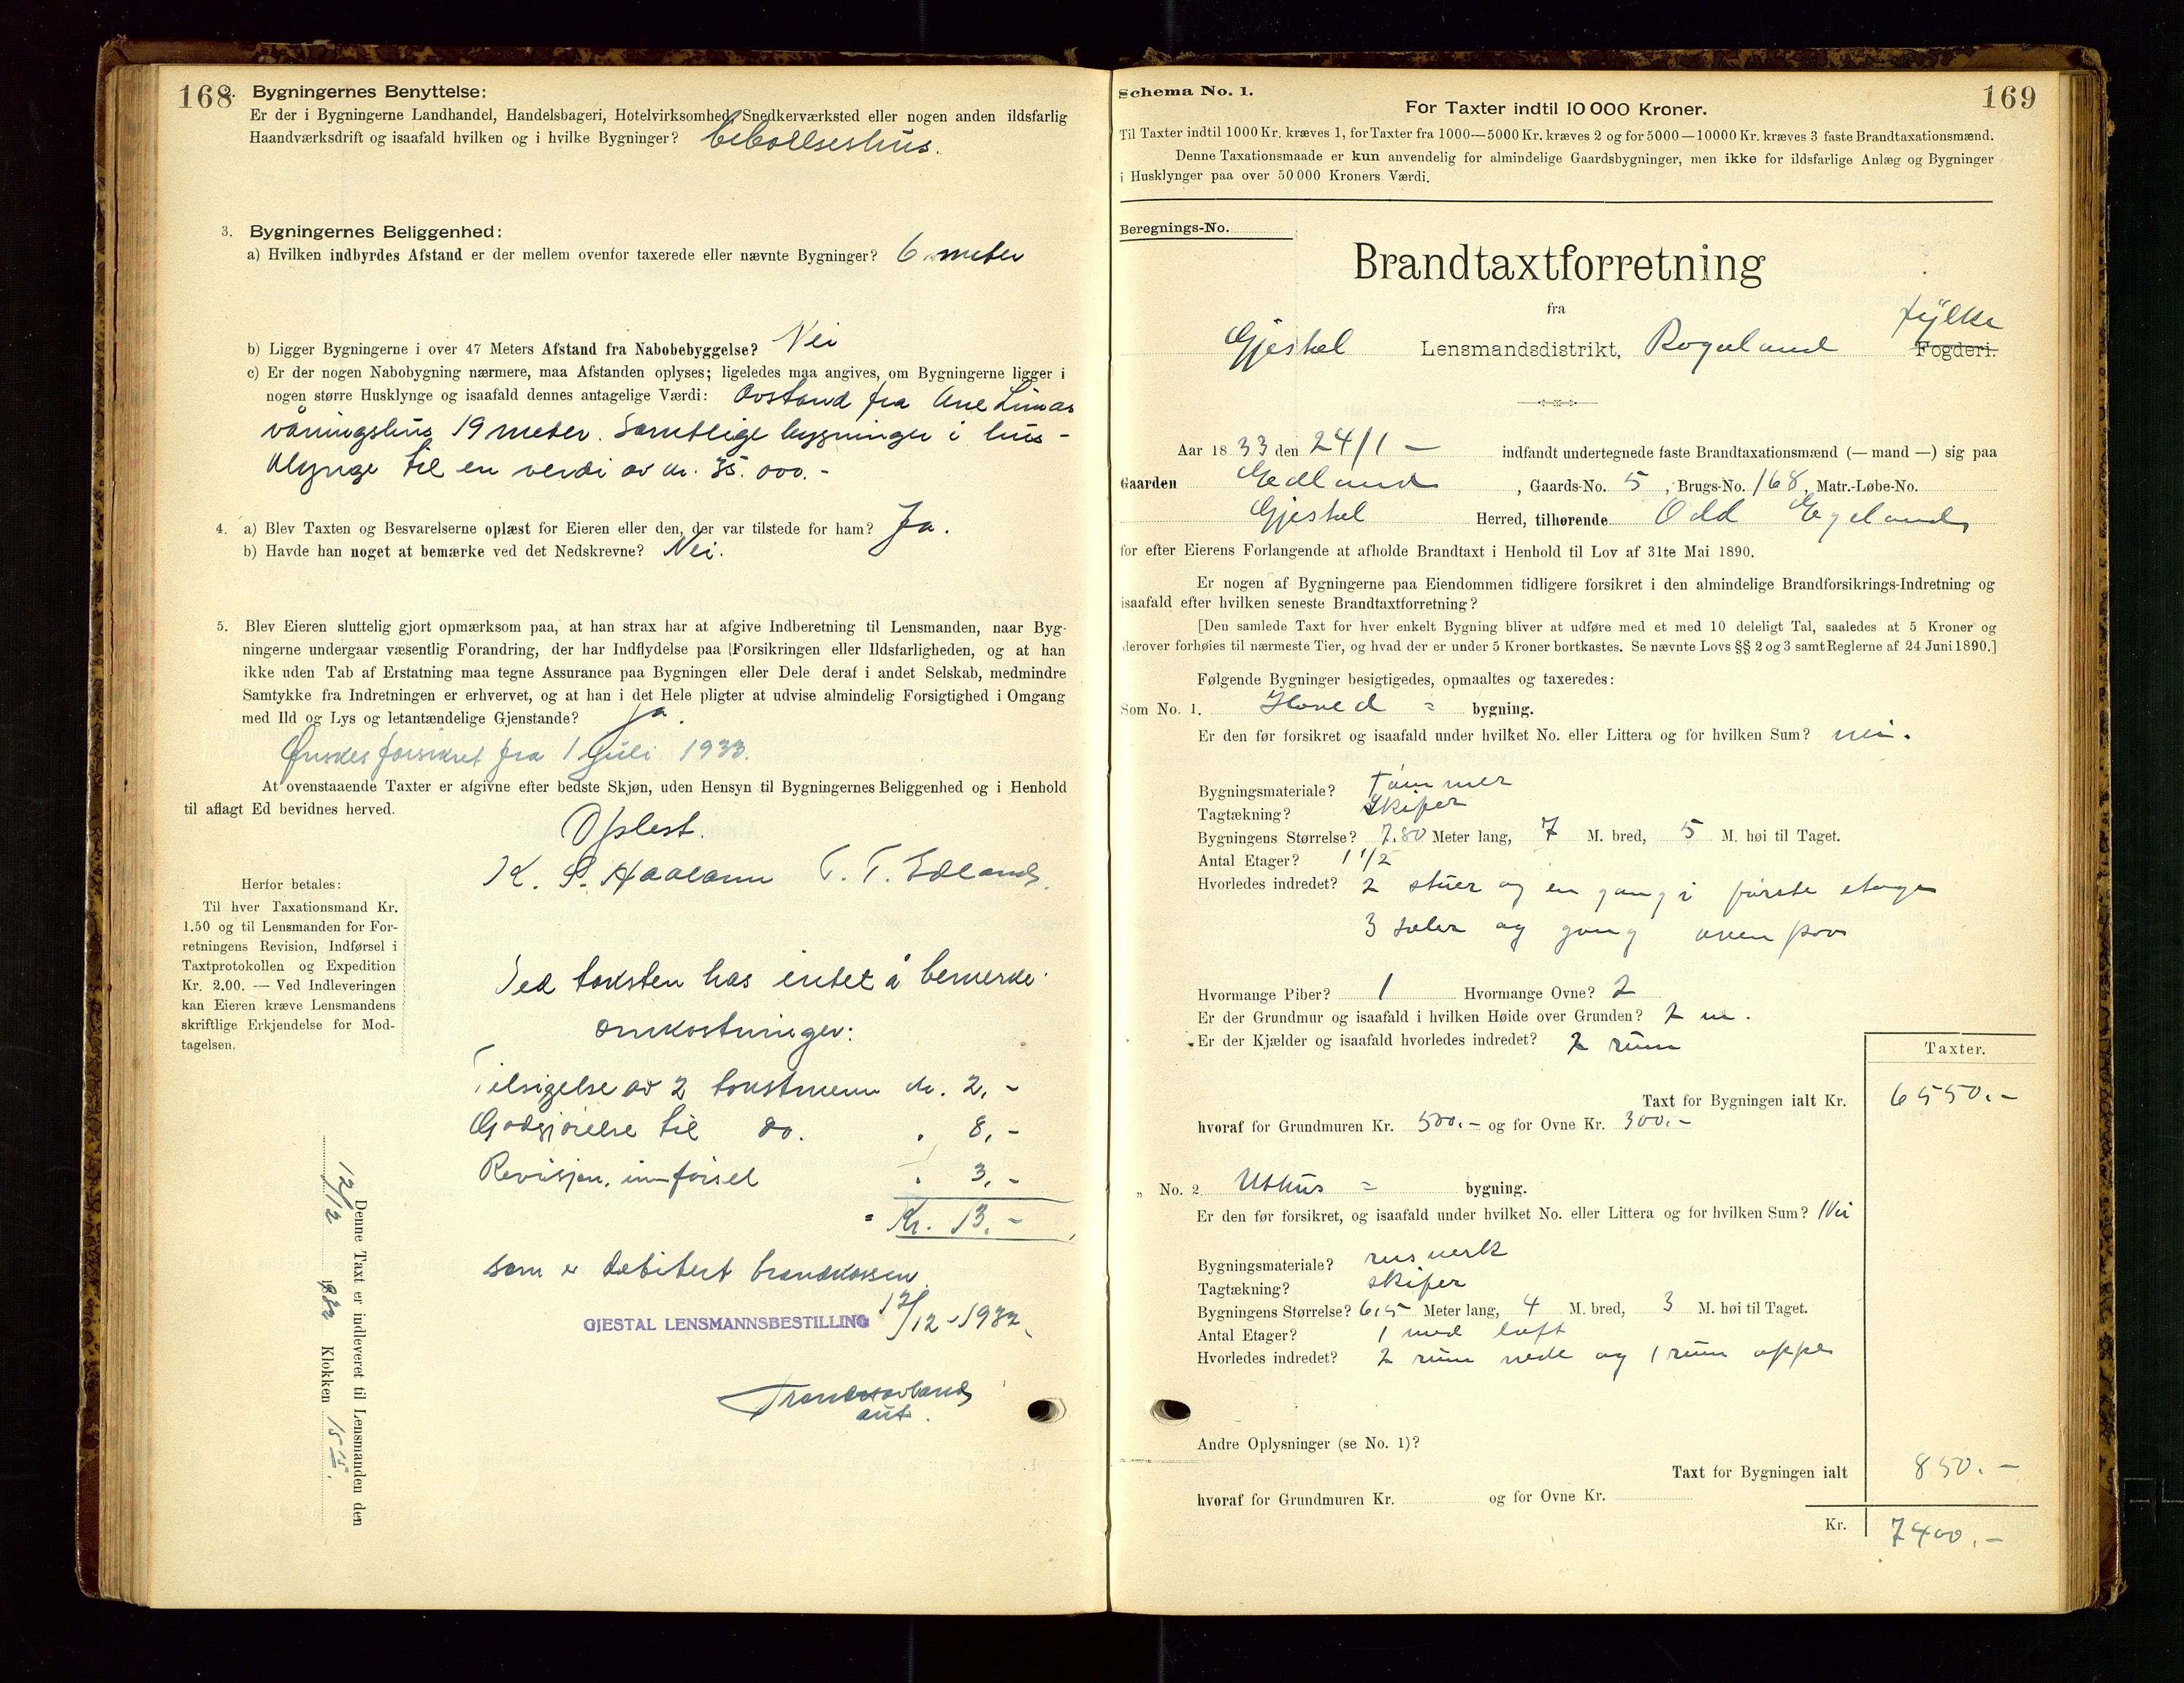 168
2. Bygningernes Benyttelse:
Er der i Bygningerne Landhandel, Handelsbageri, Hotelvirksomhed, Snedkerværksted eller nogen anden ildsfarlig
Haandværksdrift og isaafald hvilken og i hvilke Bygninger? beboelseshus.
3. Bygningernes Beliggenhed:
a) Hvilken indbyrdes Afstand er der mellem ovenfor taxerede eller nævnte Bygninger? 6 meter
b) Ligger Bygningerne i over 47 Meters Afstand fra Nabobebyggelse? Nei
c) Er der nogen Nabobygning nærmere, maa Afstanden oplyses; ligeledes maa angives, om Bygningerne ligger i
nogen større Husklynge og isaafald dennes antagelige Værdi: Avstand fra Ane Limas
våningshus 19 meter. Samtlige bygninger i hus-
klynge til en verdi av kr. 35.000.-
4. a) Blev Taxten og Besvarelserne oplæst for Eieren eller den, der var tilstede for ham? Ja.
b) Havde han noget at bemærke ved det Nedskrevne? Nei.
5. Blev Eieren sluttelig gjort opmærksom paa, at han strax har at afgive Indberetning til Lensmanden, naar Byg-
ningerne undergaar væsentlig Forandring, der har Indflydelse paa Forsikringen eller Ildsfarligheden, og at han
ikke uden Tab af Erstatning maa tegne Assurance paa Bygningen eller Dele deraf i andet Selskab, medmindre
Samtykke fra Indretningen er erhvervet, og at han i det Hele pligter at udvise almindelig Forsigtighed i Omgang
med Ild og Lys og letantændelige Gjenstande? ja.
Ønskes forsikret fra 1 Juli 1933.
At ovenstaaende Taxter er afgivne efter bedste Skjøn, uden Hensyn til Bygningernes Beliggenhed og i Henhold
til aflagt Ed bevidnes herved.
Oplest.
K. S. Haaland T. T. Edland.
Herfor betales:
Til hver Taxationsmand Kr.
1.50 og til Lensmanden for For-
retningens Revision, Indførsel i
Taxtprotokollen og Expedition
Kr. 2.00. — Ved Indleveringen
kan Eieren kræve Lensmandens
skriftlige Erkjendelse for Mod-
tagelsen.
Ved taksten has intet å bemerke.
Omkostninger:
Tilsigelse av 2 takstmenn kr. 2,-
Godgjørelse til do. " 8,-
Revisjon, innførsel " 3,-
Kr. 13.-
som er debitert brandkassen.
GJESTAL LENSMANNSBESTILLING 12/12-1932.
aut.
Denne Taxt er indleveret til Lensmanden den
12/12 1932 Klokken 15 15.
169
Schema No. 1.
For Taxter indtil 10 000 Kroner.
Til Taxter indtil 1000 Kr. kræves 1, for Taxter fra 1000—5000 Kr. kræves 2 og for 5000—10000 Kr. kræves 3 faste Brandtaxationsmænd.
Denne Taxationsmaade er kun anvendelig for almindelige Gaardsbygninger, men ikke for ildsfarlige Anlæg og Bygninger
i Husklynger paa over 50 000 Kroners Værdi.
Beregnings-No.
Brandtaxtforretning
fra
Gjestal Lensmandsdistrikt, Rogaland fylke Fogderi.
Aar 18 33 den 24/1 - indfandt undertegnede faste Brandtaxationsmænd (— mand —) sig paa
Gaarden Edland, Gaards-No. 5, Brugs-No. 168, Matr.-Løbe-No.
Gjestal Herred, tilhørende Odd Egeland
for efter Eierens Forlangende at afholde Brandtaxt i Henhold til Lov af 31te Mai 1890.
Er nogen af Bygningerne paa Eiendommen tidligere forsikret i den almindelige Brandforsikrings-Indretning og
isaafald efter hvilken seneste Brandtaxtforretning?
[Den samlede Taxt for hver enkelt Bygning bliver at udføre med et med 10 deleligt Tal, saaledes at 5 Kroner og
derover forhøies til nærmeste Tier, og hvad der er under 5 Kroner bortkastes. Se nævnte Lovs §§ 2 og 3 samt Reglerne af 24 Juni 1890.]
Følgende Bygninger besigtigedes, opmaaltes og taxeredes:
Som No. 1. Hoved = bygning.
Er den før forsikret og isaafald under hvilket No. eller Littera og for hvilken Sum? nei.
Bygningsmateriale? tømmer
Tagtækning? Skifer
Bygningens Størrelse? 7.80 Meter lang, 7 M. bred, 5 M. høi til Taget.
Antal Etager? 1 1/2
Hvorledes indredet? 2 stuer og en gang i første etage
3 saler og gang ovenpaa
Hvormange Piber? 1 Hvormange Ovne? 2
Er der Grundmur og isaafald i hvilken Høide over Grunden? 2 m.
Er der Kjælder og isaafald hvorledes indredet? 2 rum
Taxter.
Taxt for Bygningen ialt Kr. 6550.-
hvoraf for Grundmuren Kr. 500.- og for Ovne Kr. 300.-
„ No. 2 Uthus = bygning.
Er den før forsikret, og isaafald under hvilket No. eller Littera og for hvilken Sum? Nei
Bygningsmateriale? reisverk
Tagtækning? skifer
Bygningens Størrelse? 6,5 Meter lang, 4 M. bred, 3 M. høi til Taget.
Antal Etager? 1 med loft
Hvorledes indredet? 2 rum nede og 1 rum oppe
Andre Oplysninger (se No. 1)?
Taxt for Bygningen ialt 850.-
hvoraf for Grundmuren Kr. og for Ovne Kr.
Kr. 7400.-